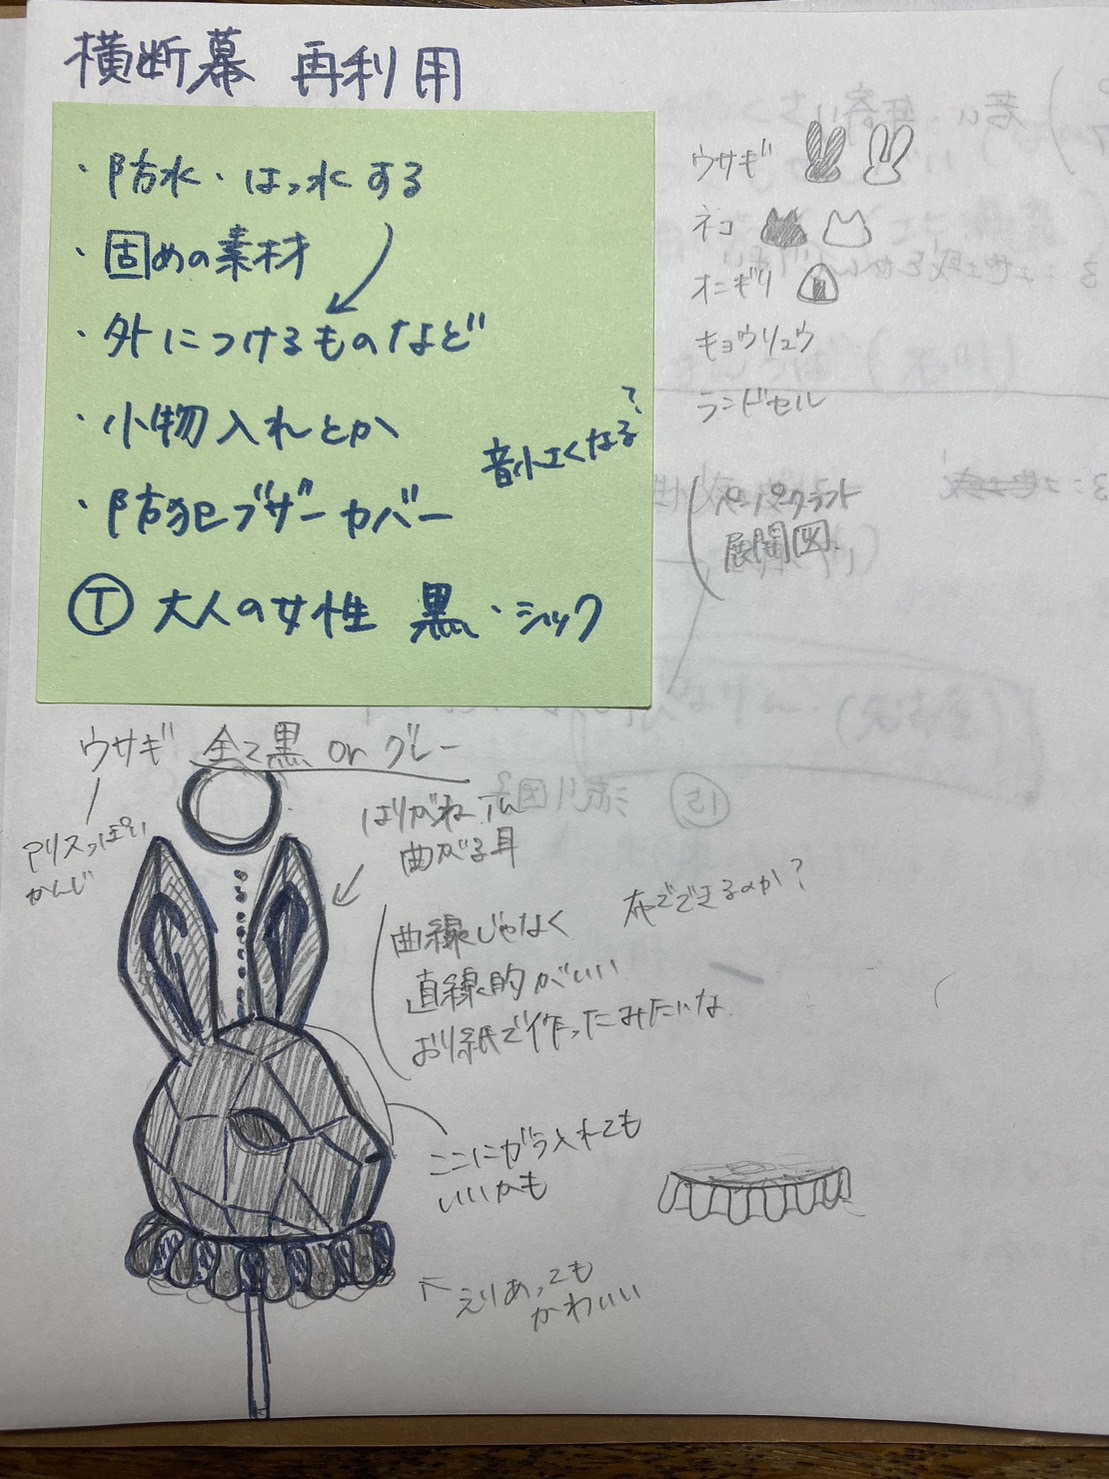 横断幕 再利用
・防水・はっ水する
・固めの素材
・外につけるものなど
・小物入れとか
音小さくなる?
・防犯ブザーカバー
Ⓣ 大人の女性 黒・シック
ウサギ
ネコ
オニギリ
キョウリュウ
ランドセル
ペーパークラフト
展開図
ウサギ 全て黒 or グレー
アリスっぽい
かんじ
はりがね
曲がる耳
曲線じゃなく
直線的がいい
おり紙で作ったみたいな
布でできるのか?
ここにガラ入れても
いいかも
えりあっても
かわいい